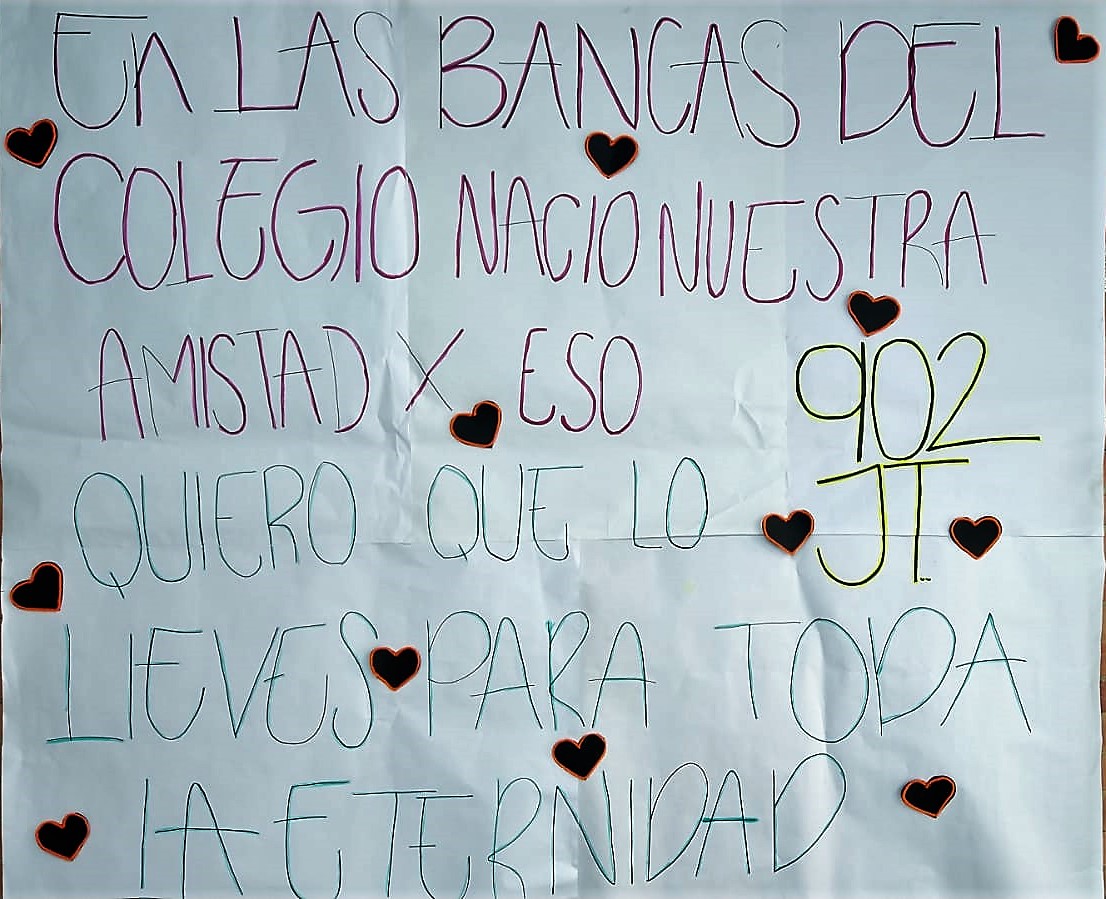 EN LAS BANCAS DEL
COLEGIO NACIO NUESTRA
AMISTAD X ESO
902
JT.
QUIERO QUE LO
LIEVES PARA TODA
LA ETERNIDAD